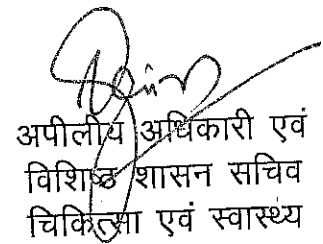 अपीलीय अधिकारी एवं
विशिष्ठ शासन सचिव
चिकित्सा एवं स्वास्थ्य